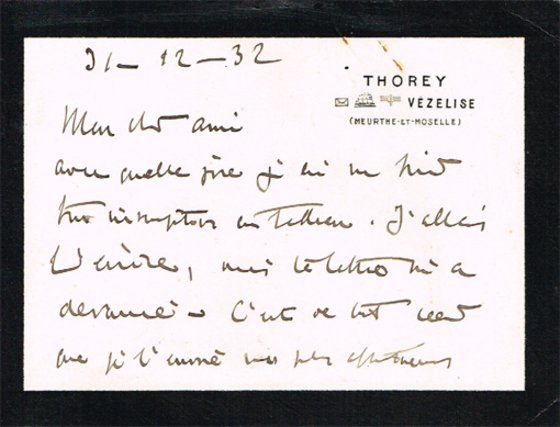 31-12-32
THOREY
VÉZELISE
(MEURTHE-ET-MOSELLE)
Mon cher ami
avec quelle joie j'ai
J'allais
t'écrire, mais ta lettre m'a
devancé - C'est de tout cœur
que je t'envoie mes plus affectueuses